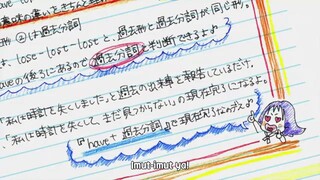 意味の違いをきちんと
形 ②は過去分詞
は、lose-lost-lostと、過去形と過去分詞が同じ形。
haveの後ろにあるので過去分詞と判断できるよ♪
「私は時計を失くしました」と過去の出来事を報告しているだけ。
「私は時計を失くして、まだ見つからない」の現在完了になるよ。
『have+過去分詞』で現在完了なのデス♪
Imut-imut yo!